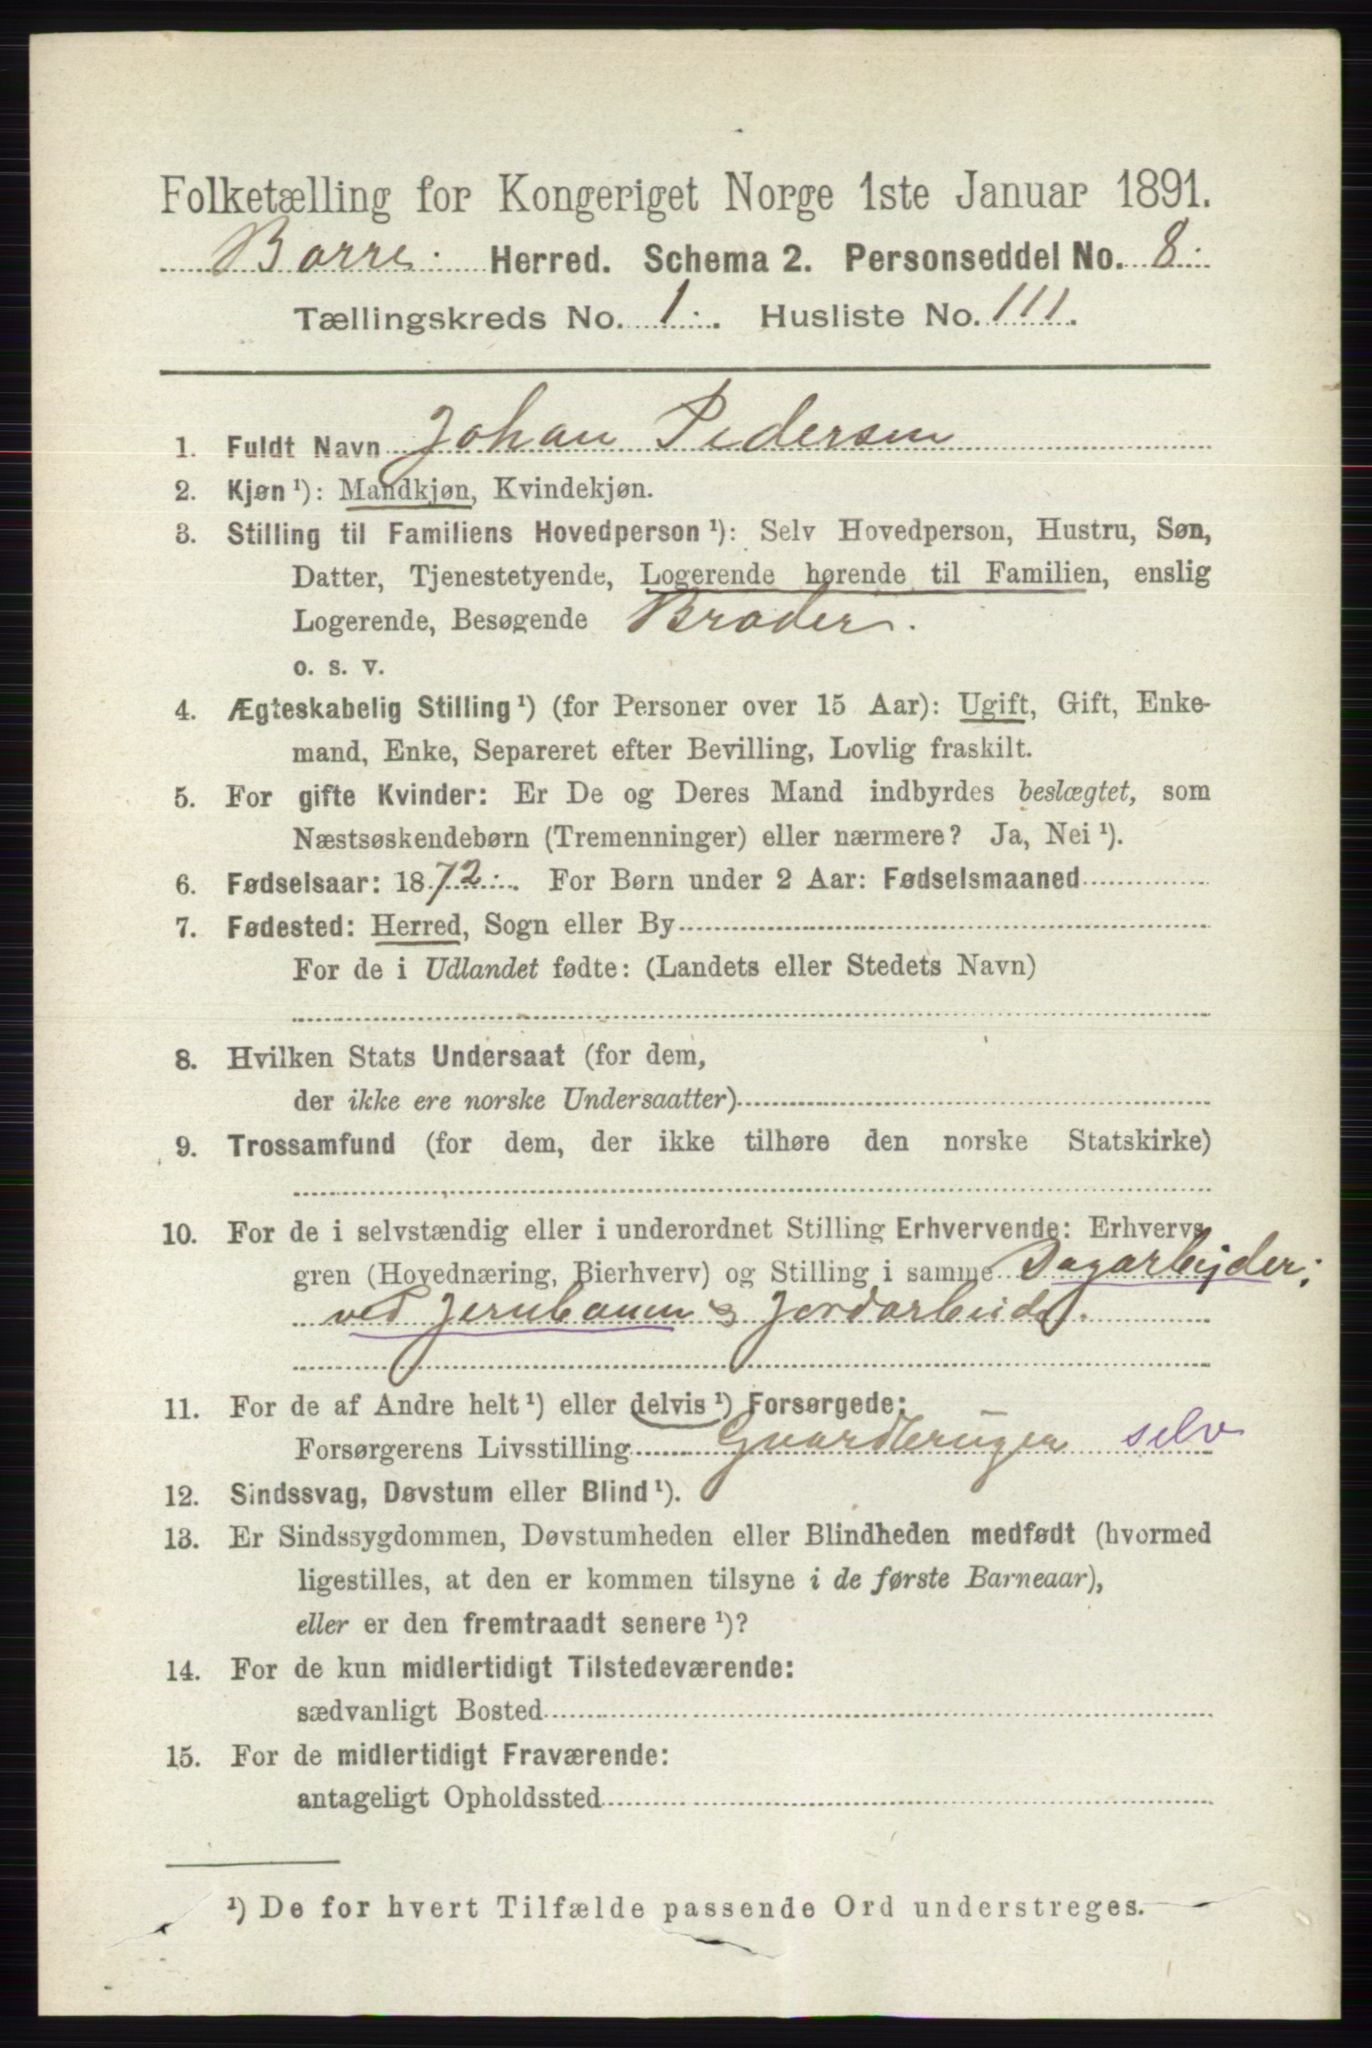 Folketælling for Kongeriget Norge 1ste Januar 1891.
Borre. Herred. Schema 2. Personseddel No. 8.
Tællingskreds No. 1. Husliste No. 111.
1. Fuldt Navn Johan Pedersen
2. Kjøn ¹): Mandkjøn, Kvindekjøn.
3. Stilling til Familiens Hovedperson ¹): Selv Hovedperson, Hustru, Søn,
Datter, Tjenestetyende, Logerende hørende til Familien, enslig
Logerende, Besøgende Broder.
o. s. v.
4. Ægteskabelig Stilling ¹) (for Personer over 15 Aar): Ugift, Gift, Enke-
mand, Enke, Separeret efter Bevilling, Lovlig fraskilt.
5. For gifte Kvinder: Er De og Deres Mand indbyrdes beslægtet, som
Næstsøskendebørn (Tremenninger) eller nærmere? Ja, Nei ¹).
6. Fødselsaar: 1872. For Børn under 2 Aar: Fødselsmaaned
7. Fødested: Herred, Sogn eller By
For de i Udlandet fødte: (Landets eller Stedets Navn)
8. Hvilken Stats Undersaat (for dem,
der ikke ere norske Undersaatter)
9. Trossamfund (for dem, der ikke tilhøre den norske Statskirke)
10. For de i selvstændig eller i underordnet Stilling Erhvervende: Erhvervs
gren (Hovednæring, Bierhverv) og Stilling i samme Dagarbejder;
ved Jernbanen & Jordarbeide.
11. For de af Andre helt ¹) eller delvis ¹) Forsørgede:
Forsørgerens Livsstilling Gaardbruger selv
12. Sindssvag, Døvstum eller Blind ¹).
13. Er Sindssygdommen, Døvstumheden eller Blindheden medfødt (hvormed
ligestilles, at den er kommen tilsyne i de første Barneaar),
eller er den fremtraadt senere ¹)?
14. For de kun midlertidigt Tilstedeværende:
sædvanligt Bosted
15. For de midlertidigt Fraværende:
antageligt Opholdssted
¹) De for hvert Tilfælde passende Ord understreges.